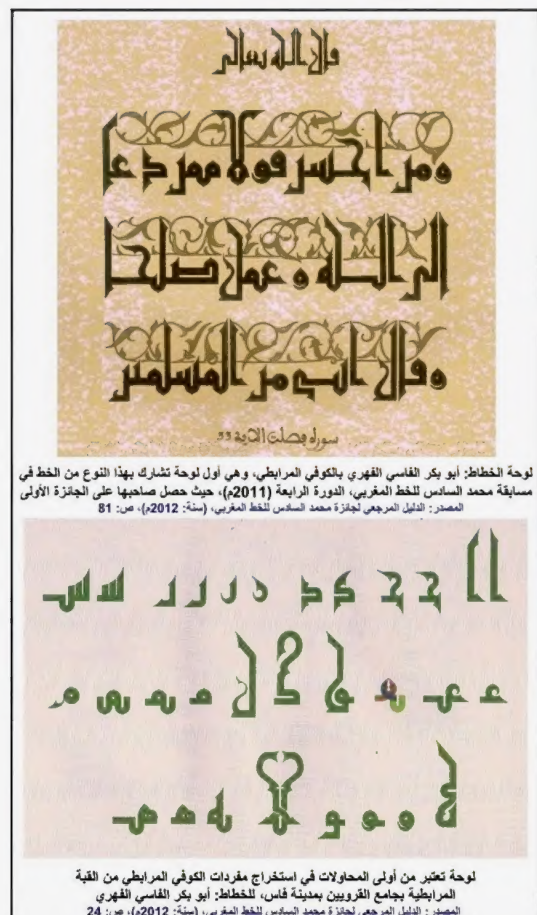 قال الله تعالى
ومن احسن قولا ممن دعا
الى الله وعمل صلحا
وقال انني من المسلمين
سورة فصلت الآية 33
لوحة الخطاط: أبو بكر الفاسي الفهري بالكوفي المرابطي، وهي أول لوحة تشارك بهذا النوع من الخط في
مسابقة محمد السادس للخط المغربي، الدورة الرابعة (2011م)، حيث حصل صاحبها على الجائزة الأولى
المصدر: الدليل المرجعي لجائزة محمد السادس للخط المغربي، (سنة: 2012م)، ص: 81
لوحة تعتبر من أولى المحاولات في استخراج مفردات الكوفي المرابطي من القبة
المرابطية بجامع القرويين بمدينة فاس، للخطاط: أبو بكر الفاسي الفهري
المصدر: الدليل المرجعي لجائزة محمد السادس للخط المغربي، (سنة: 2012م)، ص: 24